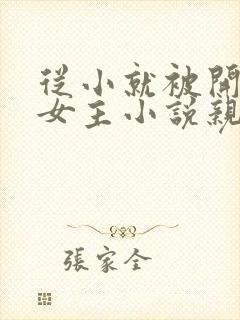 從小就被開
女主小說親
張家全